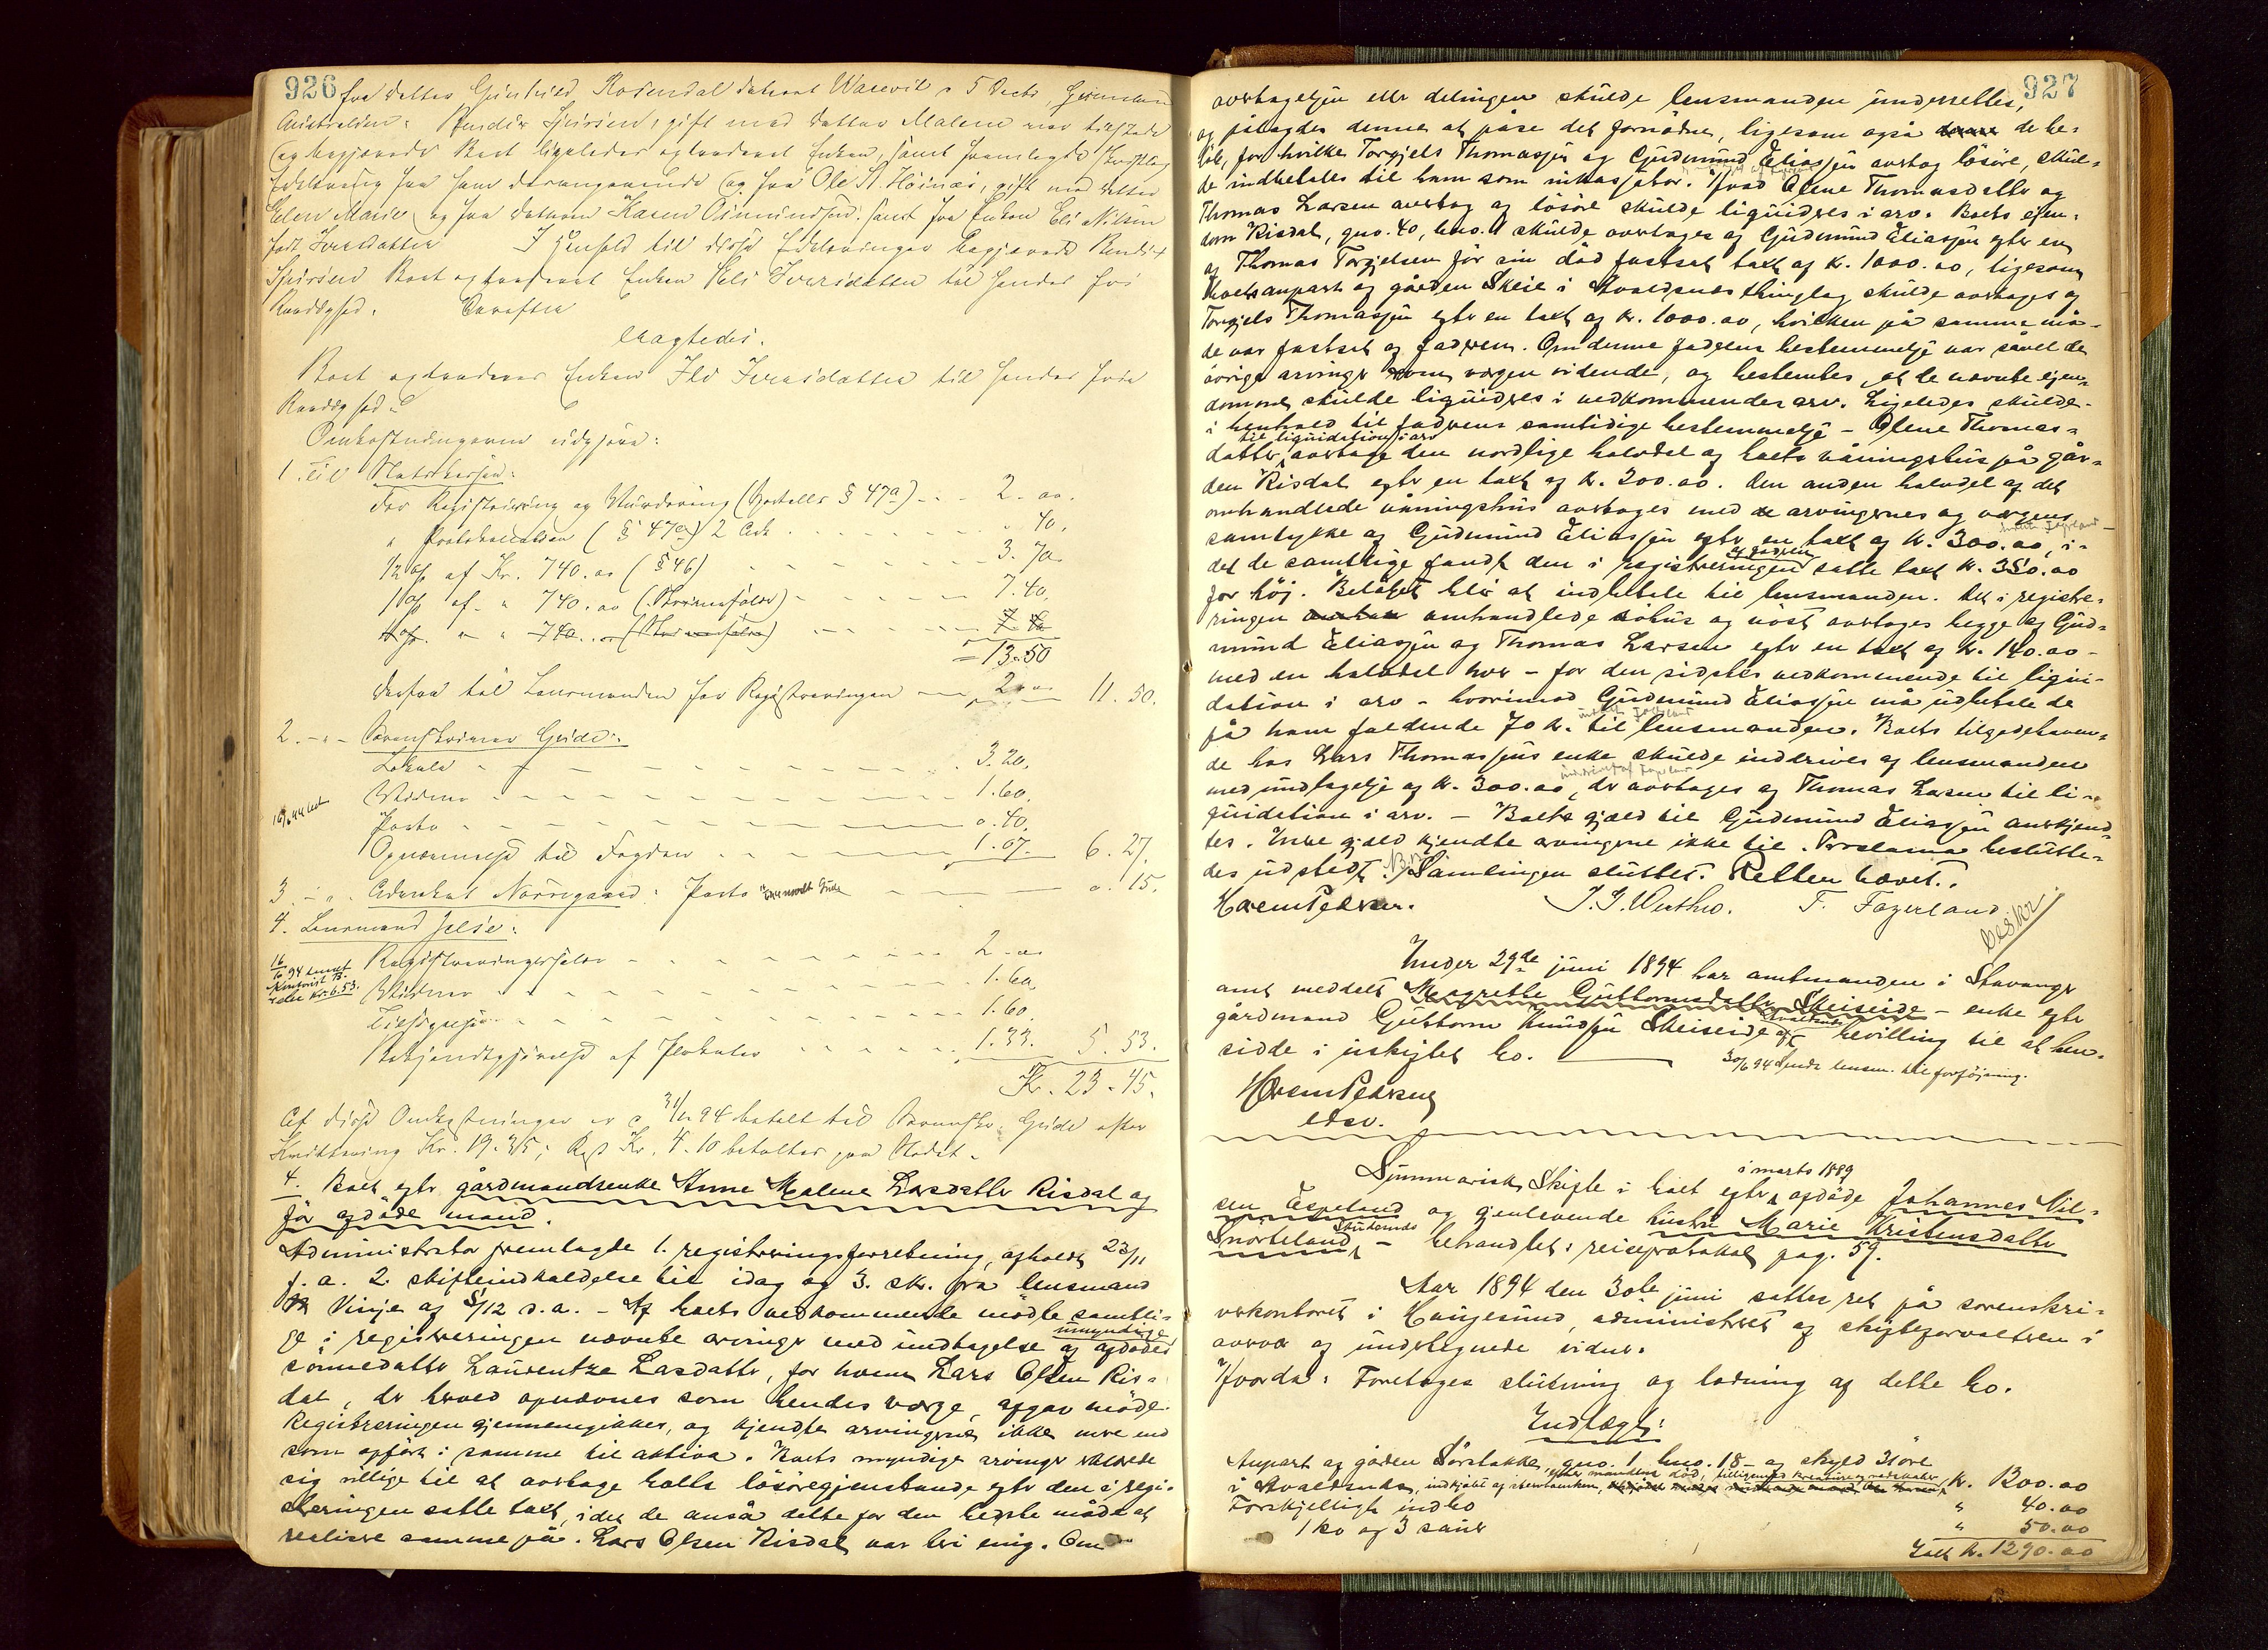 926
fra datter Gunhild Rosendal dateret Warwil 5 Decbr,
Australien. Bendix Sjursen, gift med datter Malene var tilstede
og begjærede Boet ligeledes extraderet Enken, samt fremlagde skriftlig
Erklæring fra ham desangaaende og fra Ole St. Høines, gift med datter
Elen Marie, og fra datteren Karen Osmundsen, samt fra Enken Eli Nilsen
født Iversdatter I Henhold til disse Erklæringer begjærede Bendix
Sjursen Boet extraderet Enken Eli Iversdatter til hendes fri
Raadighed. Derefter
eragtedes:
Boet extraderes Enken Ili Iversdatter til hendes frie
Raadighed.
Omkostningerne udgjøre:
1. Til Statskassen:
For Registrering og Vurdering (Sportellv § 47a) 2. 00.
" Protokollation (§ 47a) 2 Ark " 40.
1/2 % af Kr. 740. 00 (§ 46) 3. 70
1 % af " 740. 00 7. 40.
= 13. 50
derfra til Lensmanden for Registreringen 2. 00 11. 50.
2. - " - Sorenskriver Gude:
Lokale 3. 20.
Vidner 1. 60.
Porto 0. 40.
Opnævnelse til Fogden 1. 07. 6. 27.
3. - " - Advokat Nørregaard: Porto 0. 15.
4. Lensmand Jelsa:
Registreringssalær 2. 00
Vidner 1. 60
Tilsigelse 1. 60.
Bekjendtgjørelse af Proklama 1. 33. 5. 53.
Kr. 23. 45.
Af disse Omkostninger er 31/1 94 betalt til Sorenskr. Gude efter
Kvittering Kr. 19. 35; Rest Kr. 4. 10 betaltes paa Stedet.
4. Boet efter gårdmandsenke Anne Malene Larsdatter Risdal og
før afdøde mand.
Administrator fremlagde 1. registreringsforretning, afholdt 23/11
f. a. 2. skifteindkaldelse til idag og 3. skr. fra lensmand
Vinje af 5/12 s. a. - Af boets vedkommende mødte samtli-
ge i registreringen nævnte arvinger med undtagelse af afdødes umyndige
sønnedatter Laurentze Larsdatter, for hvem Lars Olsen Ris-
dal, der herved opnævnes som hendes værge, afgav møde.
Registreringen gjennemgikkes, og kjendte arvingerne ikke mere end
som opført i samme til aktiva. Boets myndige arvinger erklærede
sig villige til at overtage boets løsøregjenstande efter den i regi-
streringen satte taxt, idet de anså dette for den bedste måde at
realisere samme på. Lars Olsen Risdal var heri enig. Om
927
overtagelsen eller delingen skulde lensmanden underrettes,
og pålagdes denne at påse det fornødne, ligesom også de be-
løb, for hvilke Torgjels Thomassen og Gudmund Eliassen overtog løsøre, skul-
de indbetales til ham som inkassator. Hvad Olene Thomasdatter og
Thomas Larsen overtog af løsøre skulde liquideres i arv. Boets ejen-
dom Risdal, gno. 40, bno. 1 skulde overtages af Gudmund Eliassen efter en
af Thomas Torgjelsen før sin død fastsat taxt af kr. 1000.00, ligesom
boets anpart af gården Skeie i Avaldsnes thinglag skulde overtages af
Torgjels Thomassen efter en taxt af kr. 1000.00, hvilken på samme må-
de var fastsat af faderen. Om denne faderens bestemmelse var såvel de
øvrige arvinger som værgen vidende, og bestemtes, at de nævnte ejen-
domme skulde liquideres i vedkommendes arv. Ligeledes skulde -
i henhold til faderens samtidige bestemmelse - Olene Thomas-
datter til liquidation i arv overtage den nordlige halvdel af boets våningshus på går-
den Risdal efter en taxt af kr. 200.00. Den anden halvdel af det
omhandlede våningshus overtages med arvingernes og værgens
samtykke af Gudmund Eliassen efter en taxt af kr. 300.00, i-
det de samtlige fandt den i registreringen af faderen satte taxt kr. 350.00
for høj. Beløbet blir at indbetale til lensmanden. Det i registre-
ringen omhandlede søhus og nøst overtages begge af Gud-
mund Eliassen og Thomas Larsen efter en taxt af kr. 140.00 -
med en halvdel hver - for den sidstes vedkommende til liqui-
dation i arv - hvorimod Gudmund Eliassen må udbetale de
på ham faldende 70 kr. til lensmanden. Boets tilgodehaven-
de hos Lars Thomassens enke skulde inddrives af lensmanden
med undtagelse af kr. 300.00, der overtages af Thomas Larsen til li-
quidation i arv. - Boets gjæld til Gudmund Eliassen anerkjend-
tes. Mere gjæld kjendte arvingerne ikke til. Proclama beslutte-
des udstedt. Samlingen sluttet. Retten hævet.
Horem Pedersen. J. J. Westbro. T. Fagerland
Under 29de juni 1894 har amtmanden i Stavanger
amt meddelt Magrethe Guttormsdatter Skeiseide - enke efter
gårdmand Guttorm Knudsen Skeiseide af Avaldsnes bevilling til at hen-
sidde i uskiftet bo. 30/6 94 sendt lensm. til forføjning.
Horem Pedersen
const.
Summarisk Skifte i boet efter i marts 1889 afdøde Johannes Nil-
sen Espeland og gjenlevende hustru Marie Kristensdatter
Snørteland - behandlet i reiseprotokol pag. 59.
Aar 1894 den 30te juni sattes ret på sorenskri-
verkontoret i Haugesund, administreret af skifteforvalteren i
overvær af undertegnede vidner.
Hvorda: Foretages slutning og lodning af dette bo.
Indtægt:
Anpart af gården Sørstokke, gno. 1, bno. 18 af skyld 31 øre
i Avaldsnes, indkjøbt efter mandens død, tilligemed kreaturer og redskaber, kr. 1200.00
Forskjelligt indbo " 40.00
1 ko og 3 sauer " 50.00
Ialt kr. 1290.00